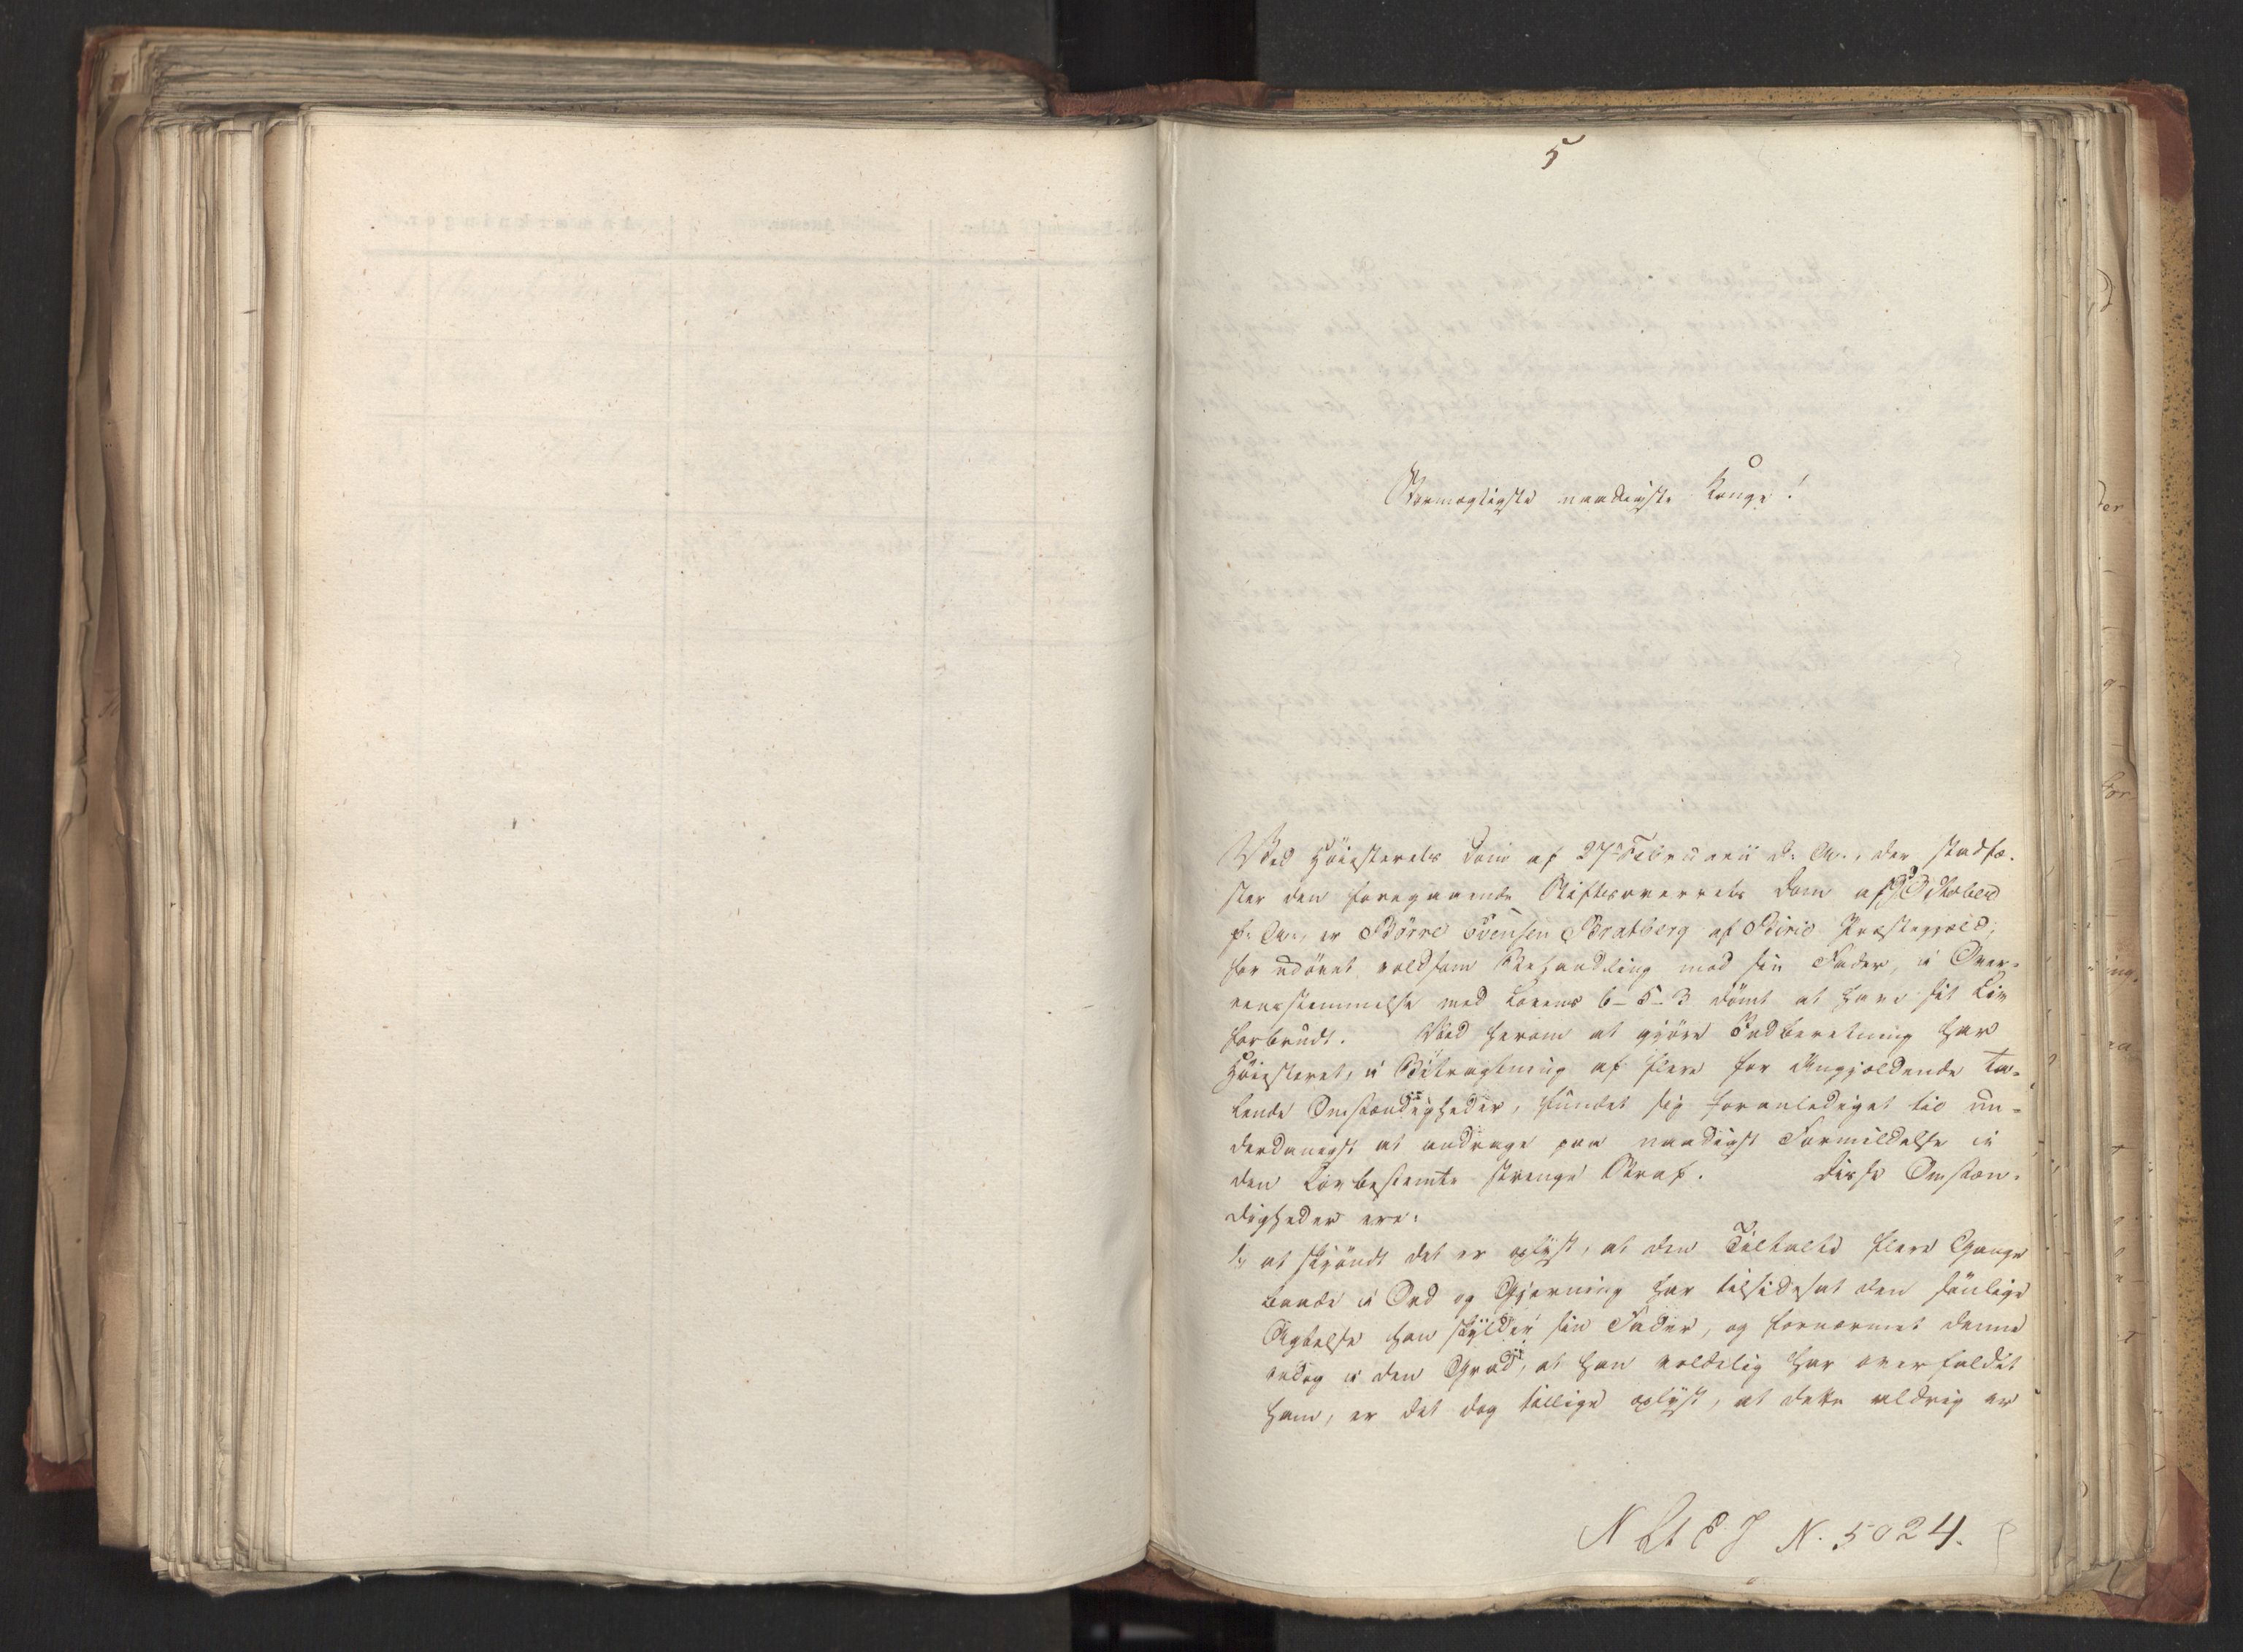 5
Stormægtigste naadigste Konge!
Ved Høiesterets Dom af 27de Februarii d. A., der stadfæ-
ster den foregaaende Stiftsoverrets Dom af October
f. A., er Børre Evensen Bratberg af Birid Præstegjæld,
for udövet voldsom Behandling mod sin Fader, i Over-
eensstemmelse med Lovens 6-5-3 dömt at have sit Liv
forbrudt. Ved herom at gjöre Indberetning har
Höiesteret, i Betragtning af flere for Angjældende ta-
lende Omstændigheder, fundet sig foranlediget til un-
derdanigst at andrage paa naadigst Formildelse i
den Lovbestemte strenge Straf. Disse Omstæn-
digheder ere:
1, at skjöndt det er oplyst, at den Tiltalte flere Gange
baade i Ord og Gjerning har tilsidesat den sönlige
Agtelse han skylder sin Fader, og fornærmet denne
endog i den Grad, at han voldelig har overfaldet
ham, er det dog tillige oplyst, at dette aldrig er
N. 5024.